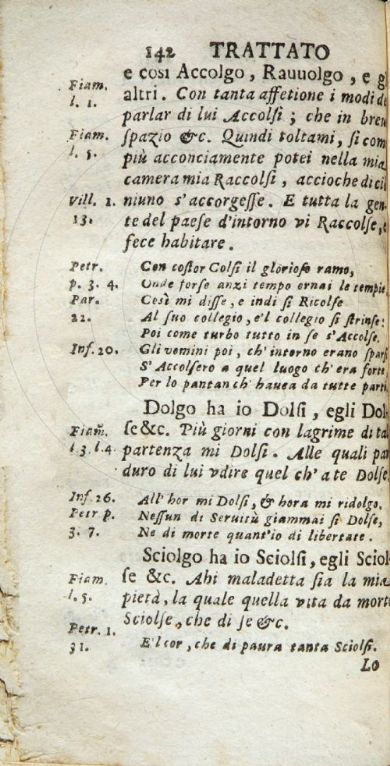 142 TRATTATO
e così Accolgo, Rauuolgo, e g
Fiam. altri. Con tanta affetione i modi de
l. 1. parlar di lui Accolsi; che in breu
Fiam. spazio &c. Quindi toltami, si com
l. 5. più acconciamente potei nella mia
camera mia Raccolsi, accioche di ciò
Vill. 1. niuno s'accorgesse. E tutta la gen
13. te del paese d'intorno vi Raccolse, e
fece habitare.
Petr. Con costor Colsi il glorioso ramo,
p. 3. 4. Onde forse anzi tempo ornai le tempie
Par. Cesì mi disse, e indi si Ricolse
22. Al suo collegio, e'l collegio si strinse:
Poi come turbo tutto in se s'Accolse.
Inf. 20. Gli vomini poi, ch'intorno erano sparsi
S'Accolsero a quel luogo ch'era forte,
Per lo pantan ch'hauea da tutte parti
Dolgo ha io Dolsi, egli Dol-
Fiam. se &c. Più giorni con lagrime di tal
l. 3. l. 4. partenza mi Dolsi. Alle quali par
duro di lui vdire quel ch'a te Dolse.
Inf. 26. All'hor mi Dolsi, & hora mi ridolgo.
Petr p. Nessun di Seruitù giammai si Dolse,
3. 7. Ne di morte quant'io di libertate.
Sciolgo ha io Sciolsi, egli Sciol-
Fiam. se &c. Ahi maladetta sia la mia
l. 5. pietà, la quale quella vita da mort
Sciolse, che di se &c.
Petr. 1.
31. E'l cor, che di paura tanta Sciolsi.
Lo